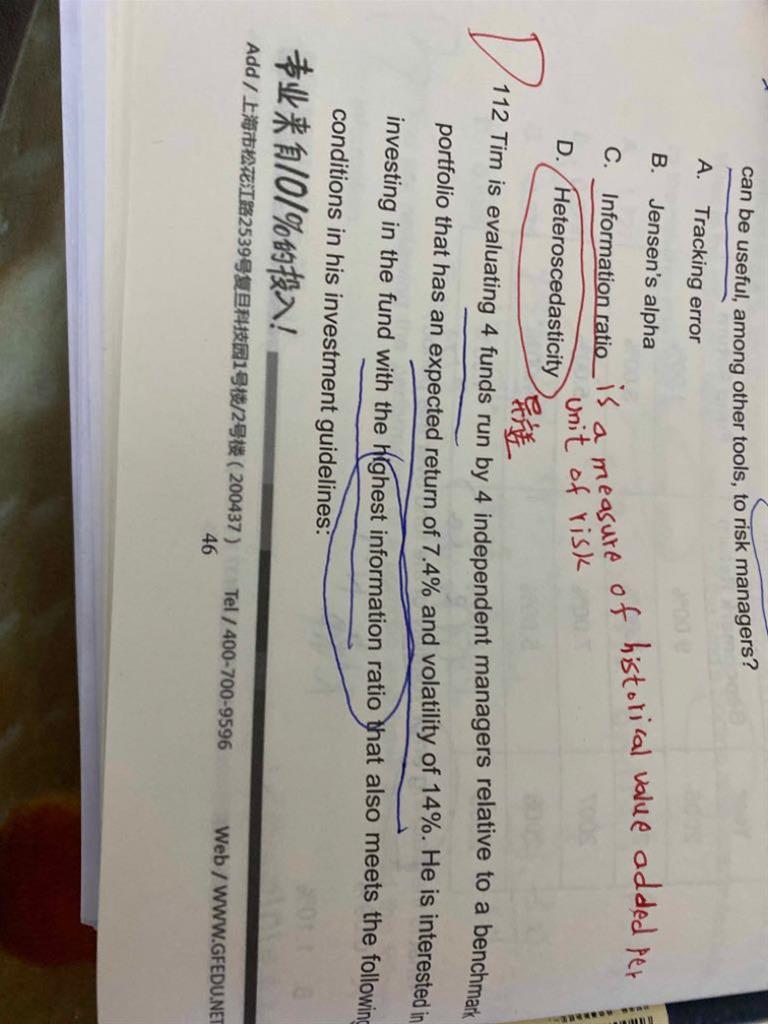 can be useful, among other tools, to risk managers?
A. Tracking error
B. Jensen's alpha
C. Information ratio is a measure of historical value added per unit of risk
D. Heteroscedasticity 异方差
D
112 Tim is evaluating 4 funds run by 4 independent managers relative to a benchmark
portfolio that has an expected return of 7.4% and volatility of 14%. He is interested in
investing in the fund with the highest information ratio that also meets the following
conditions in his investment guidelines:
专业来自101%的投入!
Add / 上海市松花江路2539号复旦科技园1号楼/2号楼 ( 200437 ) Tel / 400-700-9596 Web / WWW.GFEDU.NET
46